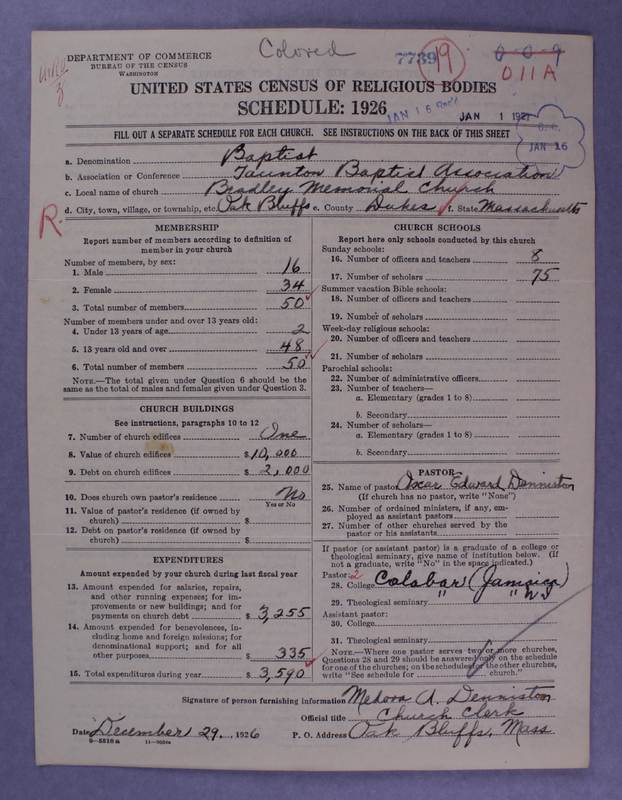 Colored
7789 19 0-0-9
011A
DEPARTMENT OF COMMERCE
BUREAU OF THE CENSUS
WASHINGTON
UNITED STATES CENSUS OF RELIGIOUS BODIES
SCHEDULE: 1926
JAN 15 Rec'd JAN 1 1927
JAN 16
FILL OUT A SEPARATE SCHEDULE FOR EACH CHURCH. SEE INSTRUCTIONS ON THE BACK OF THIS SHEET
a. Denomination Baptist
b. Association or Conference Taunton Baptist Association
c. Local name of church Bradley Memorial Church
d. City, town, village, or township, etc. Oak Bluffs e. County Dukes f. State Massachusetts
R.
MEMBERSHIP
Report number of members according to definition of
member in your church
Number of members, by sex:
1. Male 16
2. Female 34
3. Total number of members 50
Number of members under and over 13 years old:
4. Under 13 years of age 2
5. 13 years old and over 48
6. Total number of members 50
NOTE.—The total given under Question 6 should be the
same as the total of males and females given under Question 3.
CHURCH BUILDINGS
See instructions, paragraphs 10 to 12
7. Number of church edifices One
8. Value of church edifices $10,000
9. Debt on church edifices $2,000
10. Does church own pastor's residence No
Yes or No
11. Value of pastor's residence (if owned by
church) $
12. Debt on pastor's residence (if owned by
church) $
EXPENDITURES
Amount expended by your church during last fiscal year
13. Amount expended for salaries, repairs,
and other running expenses; for im-
provements or new buildings; and for
payments on church debt $3,255
14. Amount expended for benevolences, in-
cluding home and foreign missions; for
denominational support; and for all
other purposes 335
15. Total expenditures during year $3,590
CHURCH SCHOOLS
Report here only schools conducted by this church
Sunday schools:
16. Number of officers and teachers 8
17. Number of scholars 75
Summer vacation Bible schools:
18. Number of officers and teachers
19. Number of scholars
Week-day religious schools:
20. Number of officers and teachers
21. Number of scholars
Parochial schools:
22. Number of administrative officers
23. Number of teachers—
a. Elementary (grades 1 to 8)
b. Secondary
24. Number of scholars—
a. Elementary (grades 1 to 8)
b. Secondary
PASTOR
25. Name of pastor Oscar Edward Denniston
(If church has no pastor, write "None")
26. Number of ordained ministers, if any, em-
ployed as assistant pastors
27. Number of other churches served by the
pastor or his assistants
If pastor (or assistant pastor) is a graduate of a college or
theological seminary, give name of institution below. (If
not a graduate, write "No" in the space indicated.)
Pastor: 2
28. College Calabar (Jamaica)
29. Theological seminary " " W I
Assistant pastor:
30. College
31. Theological seminary
NOTE.—Where one pastor serves two or more churches,
Questions 28 and 29 should be answered only on the schedule
for one of the churches; on the schedules for the other churches,
write "See schedule for church."
Signature of person furnishing information Medora A. Denniston
Official title Church Clerk
Date December 29, 1926 P. O. Address Oak Bluffs, Mass